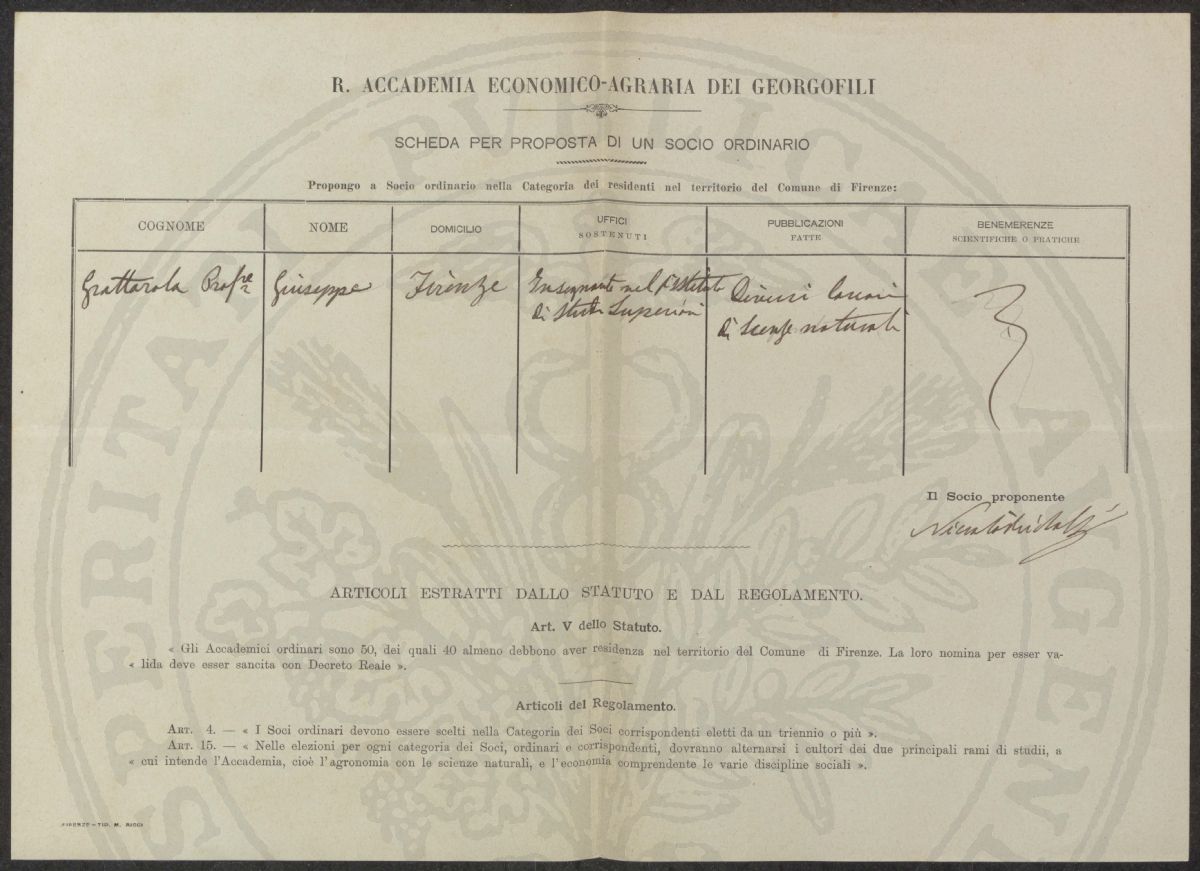 R. ACCADEMIA ECONOMICO-AGRARIA DEI GEORGOFILI
SCHEDA PER PROPOSTA DI UN SOCIO ORDINARIO
Propongo a Socio ordinario nella Categoria dei residenti nel territorio del Comune di Firenze:
COGNOME
NOME
DOMICILIO
UFFICI
SOSTENUTI
PUBBLICAZIONI
FATTE
BENEMERENZE
SCIENTIFICHE O PRATICHE
Grattarola Prof.re
Giuseppe
Firenze
Insegnante nel R. Istituto
di Studi Superiori
Diversi lavori
di Scienze naturali
Il Socio proponente
Niccolò Ridolfi
ARTICOLI ESTRATTI DALLO STATUTO E DAL REGOLAMENTO.
Art. V dello Statuto.
« Gli Accademici ordinari sono 50, dei quali 40 almeno debbono aver residenza nel territorio del Comune di Firenze. La loro nomina per esser va-
« lida deve esser sancita con Decreto Reale ».
Articoli del Regolamento.
ART. 4. — « I Soci ordinari devono essere scelti nella Categoria dei Soci corrispondenti eletti da un triennio o più ».
ART. 15. — « Nelle elezioni per ogni categoria dei Soci, ordinari e corrispondenti, dovranno alternarsi i cultori dei due principali rami di studii, a
« cui intende l'Accademia, cioè l'agronomia con le scienze naturali, e l'economia comprendente le varie discipline sociali ».
FIRENZE - TIP. M. RICCI
PROSPERITATI PUBLICAE AVGENDAE